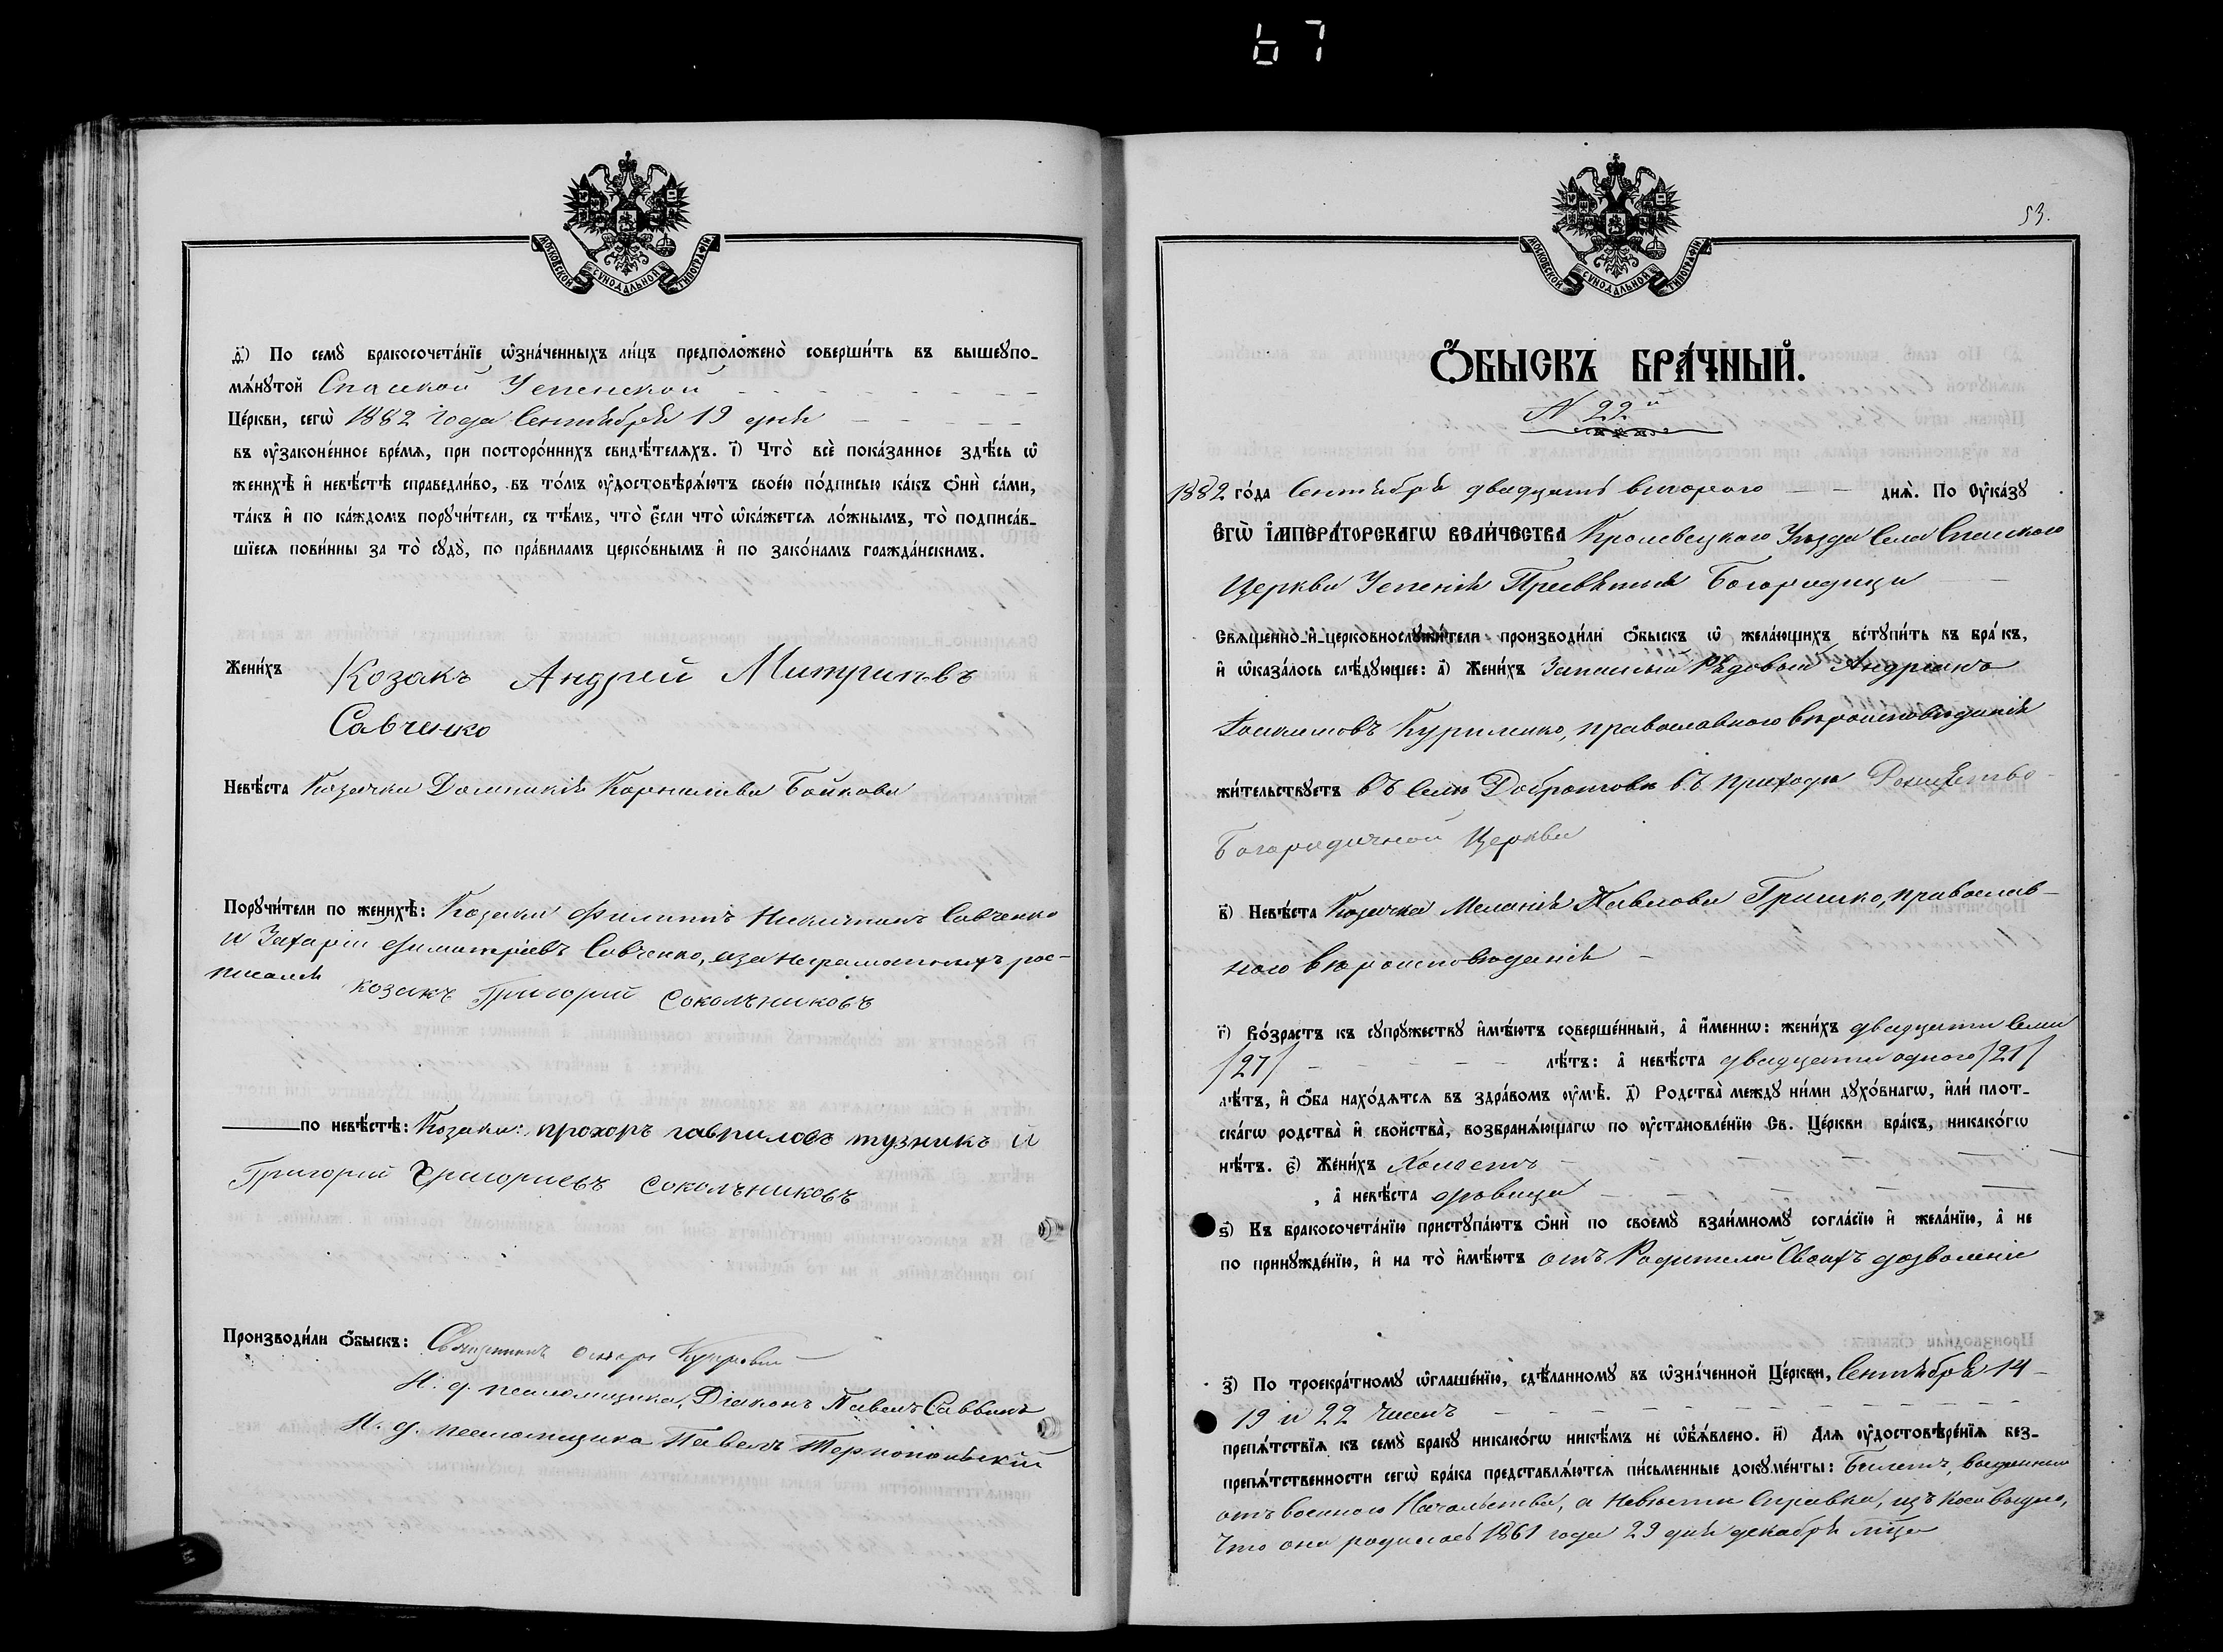 67
МОСКОВСКОЙ СѴНОДАЛЬНОЙ ТИПОГРАФІИ
д҃) По семꙋ̀ бракосочета́нїе ѡ҆зна́ченныхъ ли́цъ предполо́жено̀ соверши́ть въ вышеꙋпо-
мѧ́нꙋтой Спаской Успенской
Це́ркви, сегѡ̀ 1882 года Сентября 19 дня
въ ᲂу҆зако́ненное вре́мѧ, при посторо́ннихъ свидѣ́телѧхъ. і҃) Что̀ всѐ пока́занное здѣ́сь ѡ҆
женихѣ̀ и҆ невѣ́стѣ справедли́во, въ то́мъ ᲂу҆достовѣрѧ́ютъ свое́ю по́дписью ка́къ ѻ҆нѝ са́ми,
та́къ и҆ по ка́ждомъ порꙋчи́тели, съ тѣ́мъ, что̀ є҆́сли что̀ ѡ҆ка́жетсѧ ло́жнымъ, то̀ подписа́в-
шїесѧ пови́нны за то̀ сꙋдꙋ̀, по пра́виламъ церко́внымъ и҆ по зако́намъ гражда́нскимъ.
Жени́хъ Козакъ Андрей
Савченко
Невѣ́ста Козачка Домникія Корнилиева Бойкова
Порꙋчи́тели по женихѣ̀: Козаки Филиппъ Никитинъ Савченко
и Захарій Димитріевъ Савченко, а за неграмотныхъ рос-
писался козакъ Григорій Сокольниковъ
по невѣ́стѣ: Козаки: прохоръ гавриловъ тузникъ й
Григорий Григориевъ Сокольниковъ
Производи́ли ѻ҆́быскъ: Священникъ
И. д. псаломщика, Діаконъ Павелъ Саввинъ
И. д. псаломщика Павелъ Тернопольскій
53.
МОСКОВСКОЙ СѴНОДАЛЬНОЙ ТИПОГРАФІИ
Ѻ҆́БЫСКЪ БРА́ЧНЫЙ.
N 22й
1882 го́да Сентября двадцать втораго днѧ̀. По Оу҆ка́зꙋ
Є҆гѡ̀ И҆мпера́торскагѡ Вели́чества Кролевецкого Уѣзда Села Спаского
Церкви Успенія Пресвятыя Богородицы
Свѧщенно-и҆-церковнослꙋжи́тели производи́ли ѻ҆́быскъ ѡ҆ жела́ющихъ встꙋпи́ть въ бра́къ,
и҆ ѡ҆каза́лось слѣ́дꙋющее: а҃) Жени́хъ Запасный Рядовый Андріянъ
Іоакимовъ Куриленко, православного вѣроисповѣданія
жи́тельствꙋетъ въ Селѣ Добротовѣ въ приходѣ Рождество-
Богородичной Церкви
в҃) Невѣ́ста Козачка Меланія Павлова Гришко, православ-
ного вѣроисповѣданія
г҃) Во́зрастъ къ сꙋпрꙋ́жествꙋ и҆мѣ́ютъ соверше́нный, а҆ и҆́меннѡ: жени́хъ двадцати семи
/27/ лѣ́тъ: а҆ невѣ́ста двадцати одного /21/
лѣ́тъ, и҆ ѻ҆́ба нахо́дѧтсѧ въ здра́вомъ ᲂу҆мѣ̀. д҃) Родства̀ междꙋ ни́ми дꙋхо́внагѡ, и҆лѝ плот-
ска́гѡ родства̀ и҆ свойства̀, возбранѧ́ющагѡ по ᲂу҆становле́нїю Св. Це́ркви бра́къ, никако́гѡ
нѣ́тъ. є҃) Жени́хъ Холостъ
, а҆ невѣ́ста дѣвица
ѕ҃) Къ бракосочета́нїю пристꙋпа́ютъ ѻ҆нѝ по своемꙋ̀ взаи́мномꙋ согла́сїю и҆ жела́нїю, а҆ не
по принꙋжде́нїю, и҆ на то̀ и҆мѣ́ютъ отъ Родителей Своихъ дозволеніе
з҃) По троекра́тномꙋ ѡ҆глаше́нїю, сдѣ́ланномꙋ въ ѡ҆зна́ченной Це́ркви, Сентября 14
19 и 22 чиселъ
препѧ́тствїѧ къ семꙋ̀ бра́кꙋ никако́гѡ никѣ́мъ не ѡ҆б̾ѧ́влено. и҃) Длѧ ᲂу҆достовѣре́нїѧ без-
препѧ́тственности сегѡ̀ бра́ка представлѧ́ютсѧ пи́сьменные докꙋме́нты: Билетъ, выданный
отъ военного Начальства, а Невѣсти Справка, изъ коей видно,
что она родилась 1861 года 29 дня декабря мца